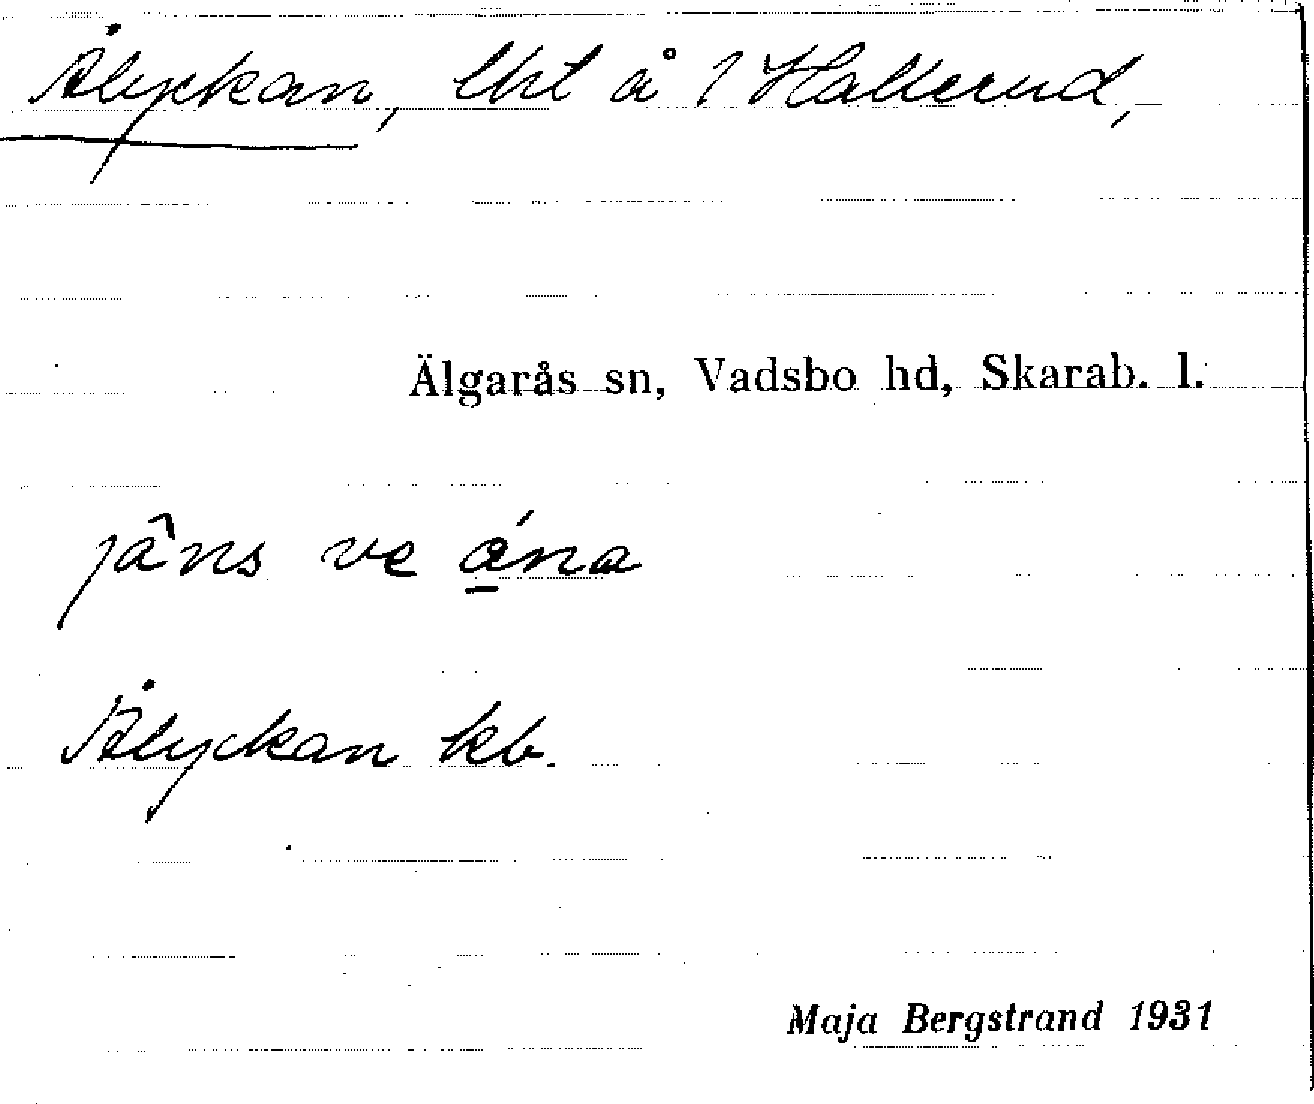 Ålyckan, lht å 1 Hallerud,
Älgarås sn, Vadsbo hd, Skarab. l.
jâns ve á̱na
Ålyckan kb.
Maja Bergstrand 1931